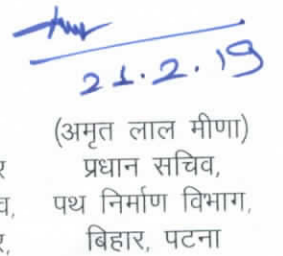 21.2.19
(अमृत लाल मीणा)
र प्रधान सचिव,
व, पथ निर्माण विभाग,
र, बिहार, पटना